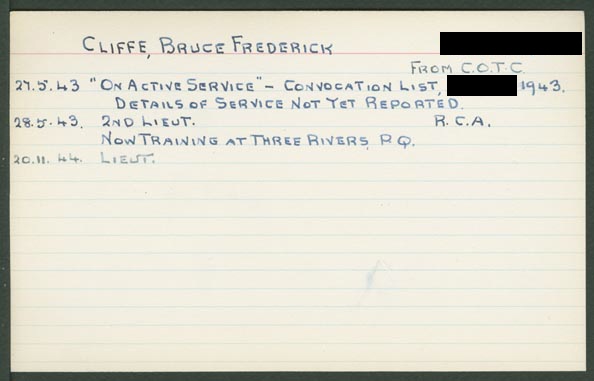 CLIFFE, BRUCE FREDERICK
FROM C.O.T.C.
27.5.43 "ON ACTIVE SERVICE" - CONVOCATION LIST, 1943.
DETAILS OF SERVICE NOT YET REPORTED.
28.5.43. 2ND LIEUT. R.C.A.
NOW TRAINING AT THREE RIVERS, P.Q.
20.11.44. LIEUT.